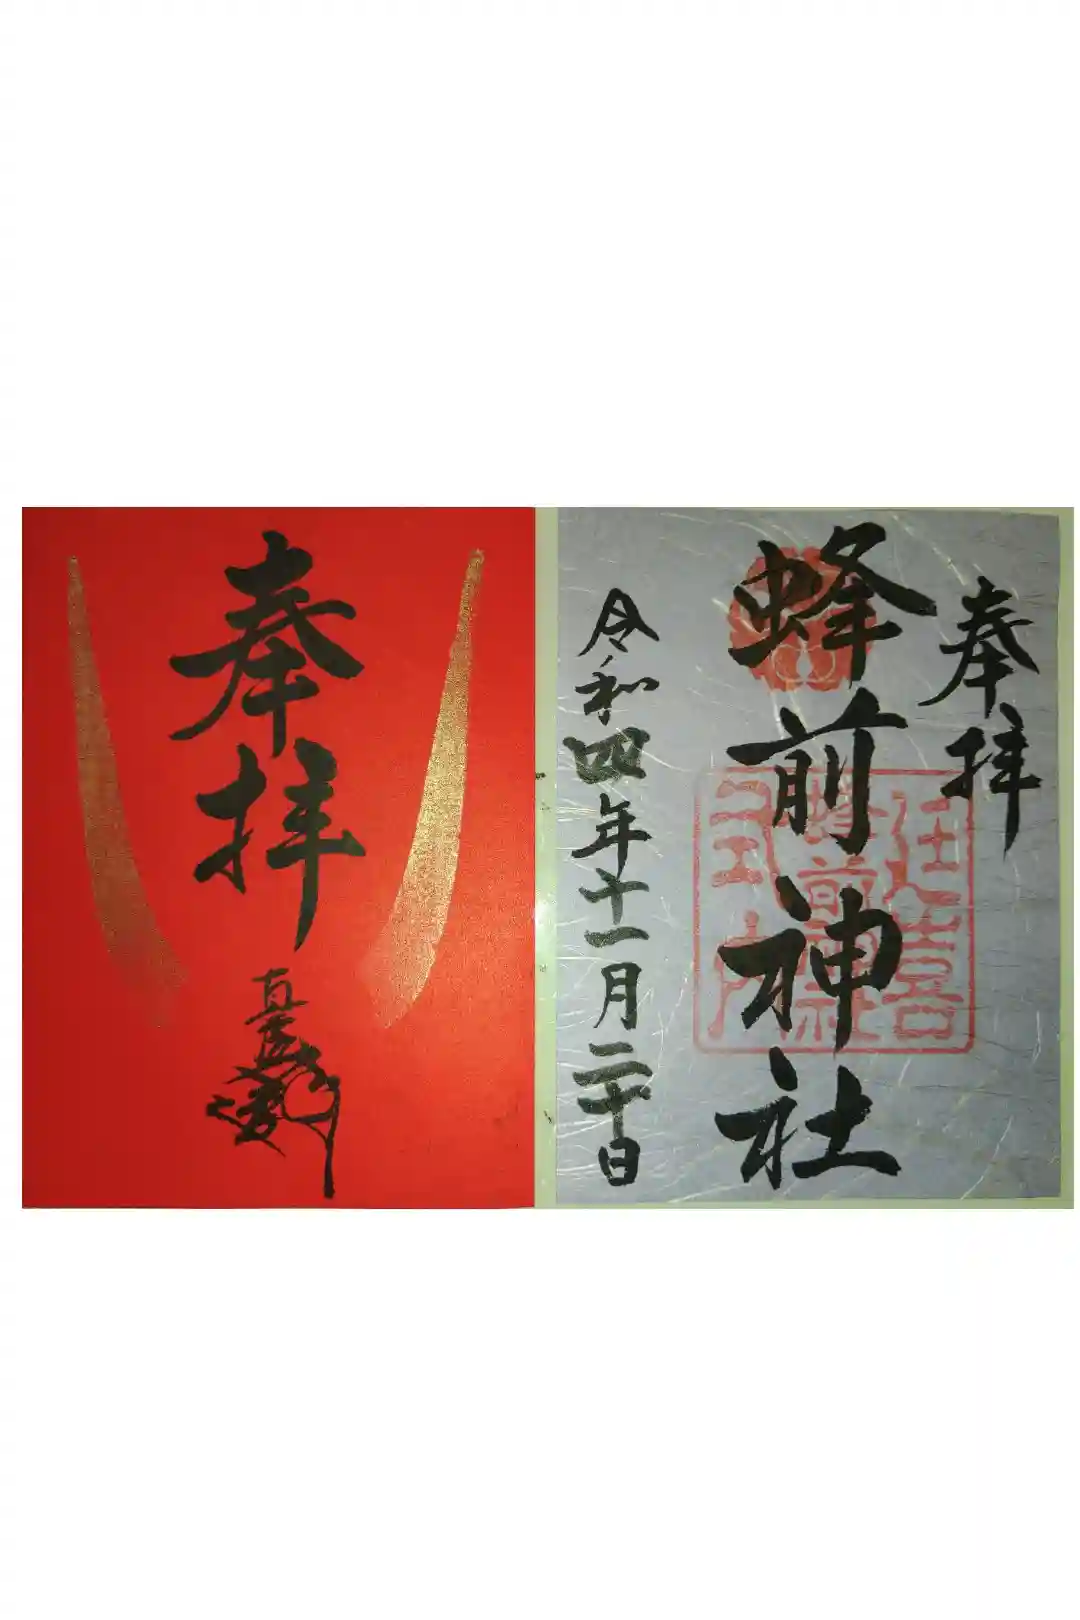 奉拝
蜂前神社
令和四年十一月二十日
奉拝